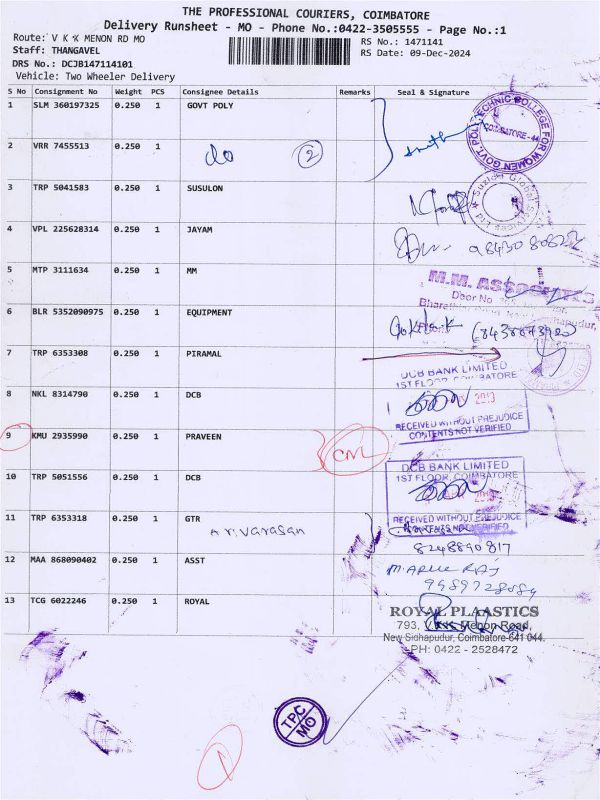 THE PROFESSIONAL COURIERS, COIMBATORE
Delivery Runsheet - MO - Phone No.:0422-3505555 - Page No.:1
Route: V K K MENON RD MO
RS No.: 1471141
Staff: THANGAVEL
RS Date: 09-Dec-2024
DRS No.: DCJB147114101
Vehicle: Two Wheeler Delivery
S No Consignment No Weight PCS Consignee Details Remarks Seal & Signature
1 SLM 360197325 0.250 1 GOVT POLY
GOVT. POLYTECHNIC COLLEGE FOR WOMEN COIMBATORE-44
2 VRR 7455513 0.250 1 do 2
3 TRP 5041583 0.250 1 SUSULON
4 VPL 225628314 0.250 1 JAYAM
5 MTP 3111634 0.250 1 MM
M.M. ASSOCIATES
Door No
6 BLR 5352090975 0.250 1 EQUIPMENT
7 TRP 6353308 0.250 1 PIRAMAL
DCB BANK LIMITED
1ST FLOOR, COIMBATORE
8 NKL 8314790 0.250 1 DCB
RECEIVED WITHOUT PREJUDICE
CONTENTS NOT VERIFIED
9 KMU 2935990 0.250 1 PRAVEEN CNL
DCB BANK LIMITED
1ST FLOOR, COIMBATORE
10 TRP 5051556 0.250 1 DCB
RECEIVED WITHOUT PREJUDICE
CONTENTS NOT VERIFIED
11 TRP 6353318 0.250 1 GTR
Arivarasan
8248890817
12 MAA 868090402 0.250 1 ASST
M. ARUL RAJ
13 TCG 6022246 0.250 1 ROYAL
ROYAL PLAASTICS
793, V.K.K. Menon Road,
New Sidhapudur, Coimbatore-641 044.
PH: 0422 - 2528472
TPC
MO
1